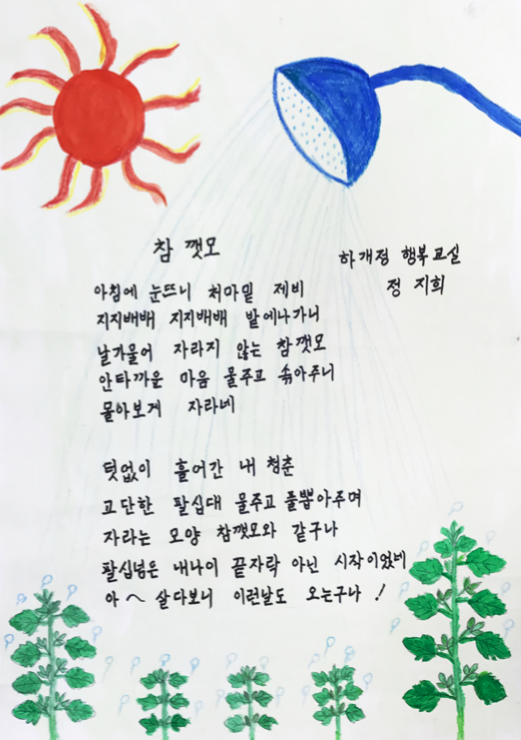 참 깻모
하개정 행복교실
정 지희
아침에 눈뜨니 처마밑 제비
지지배배 지지배배 밭에나가니
날가물어 자라지 않는 참깻모
안타까운 마음 물주고 솎아주니
몰아보게 자라네
덧없이 흘어간 내 청춘
고단한 팔십대 물주고 풀뽑아주며
자라는 모양 참깻모와 같구나
팔십넘은 내나이 끝자락 아닌 시작이었네
아~ 살다보니 이런날도 오는구나!